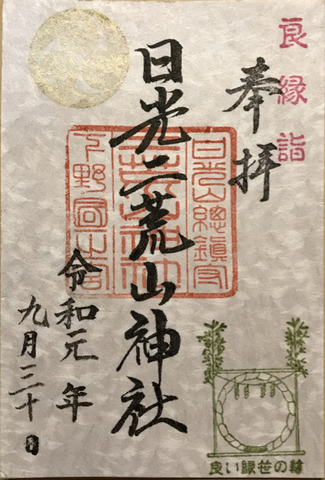 良縁詣
奉拝
日光二荒山神社
日光山總鎮守
下野國一之宮
二荒山神社
令和元年
九月三十日
良い縁笹の輪